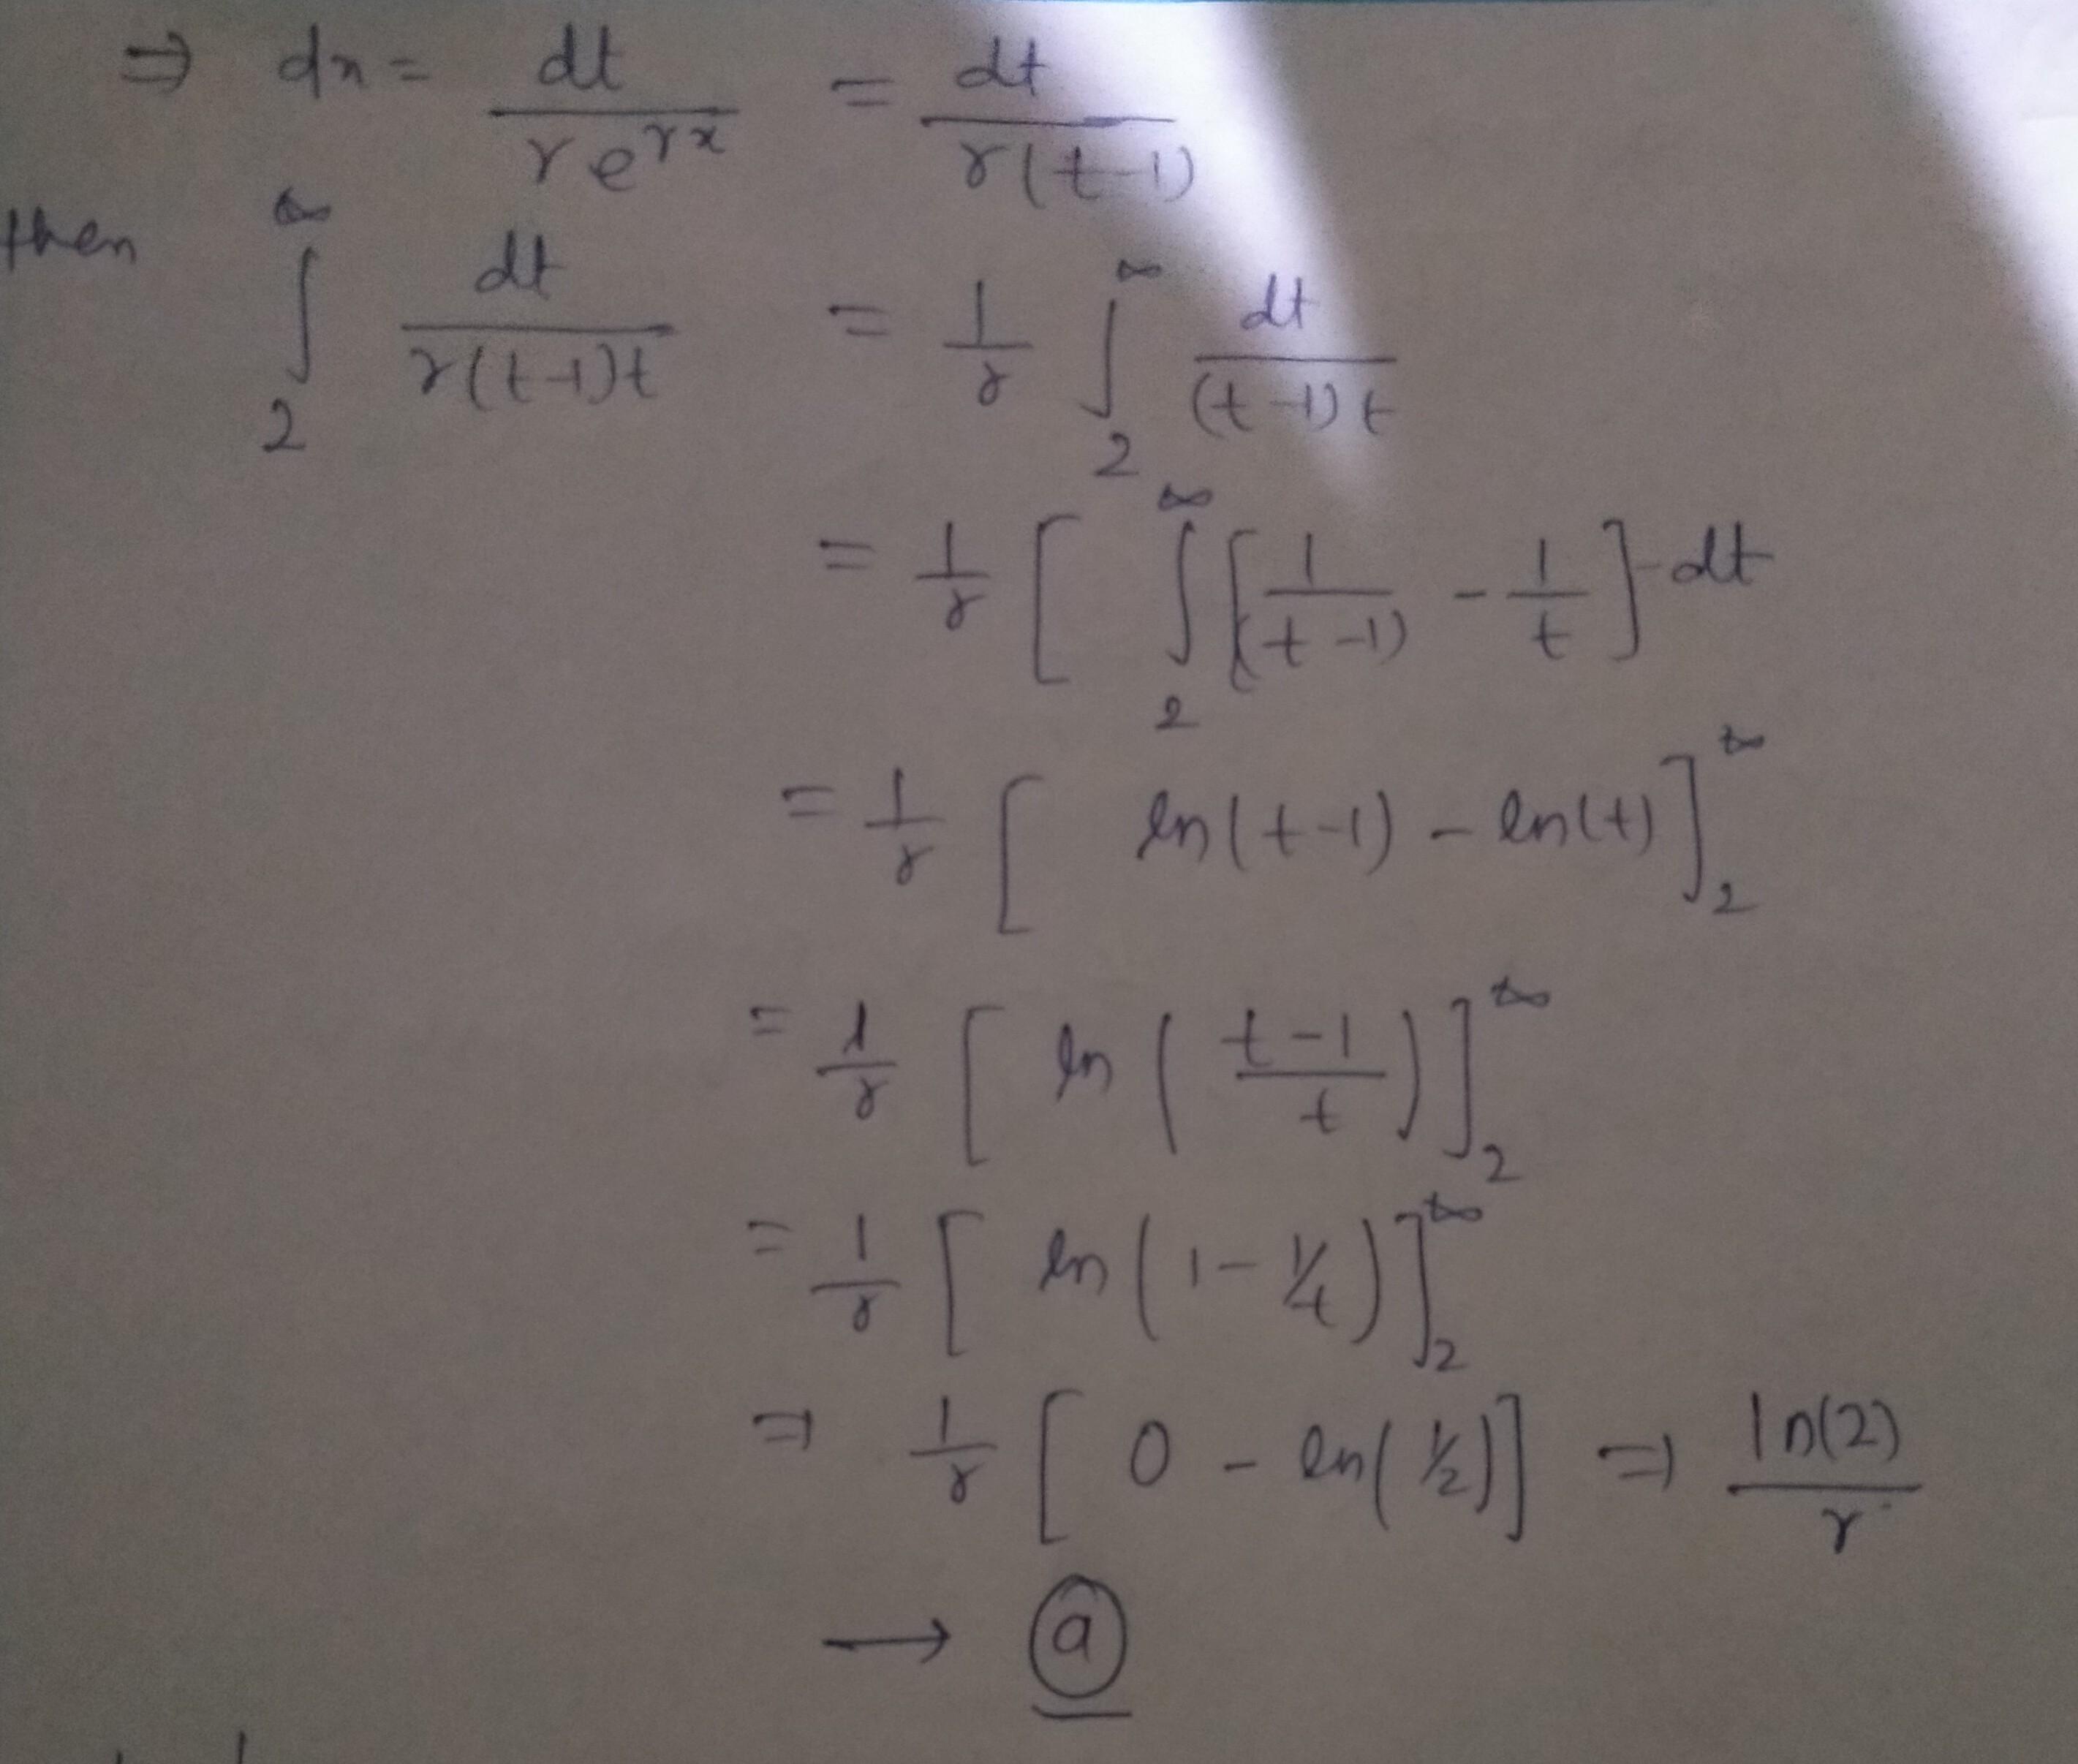 ⇒ dx = dt / r e^{rx} = dt / r(t-1)
then ∫_2^∞ dt / r(t-1)t = 1/r ∫_2^∞ dt / (t-1)t
= 1/r [ ∫_2^∞ [ 1/(t-1) - 1/t ] dt
= 1/r [ ln(t-1) - ln(t) ]_2^∞
= 1/r [ ln ( t-1 / t ) ]_2^∞
= 1/r [ ln ( 1 - 1/t ) ]_2^∞
⇒ 1/r [ 0 - ln(1/2) ] ⇒ ln(2) / r
→ a